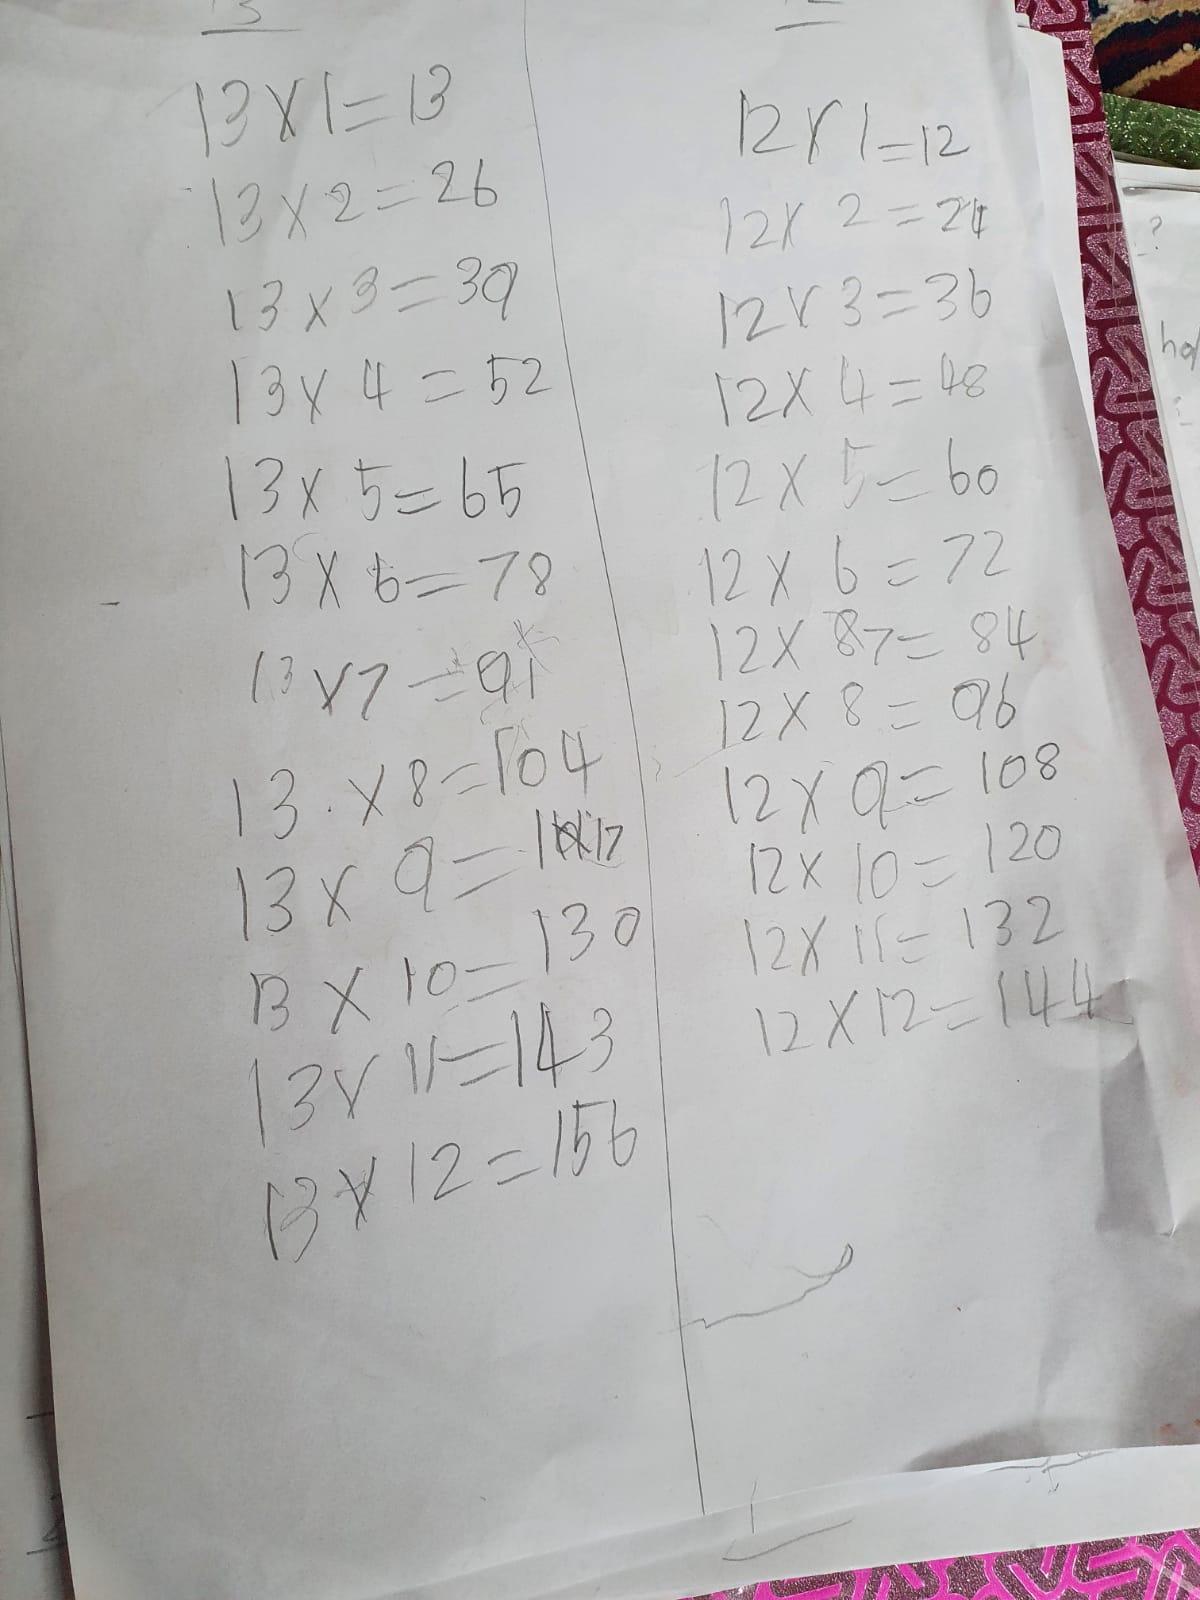 13 x 1 = 13
13 x 2 = 26
13 x 3 = 39
13 x 4 = 52
13 x 5 = 65
13 x 6 = 78
13 x 7 = 91
13 . x 8 = 104
13 x 9 = 117
13 x 10 = 130
13 x 11 = 143
13 x 12 = 156
12 x 1 = 12
12 x 2 = 24
12 x 3 = 36
12 x 4 = 48
12 x 5 = 60
12 x 6 = 72
12 x 87 = 84
12 x 8 = 96
12 x 9 = 108
12 x 10 = 120
12 x 11 = 132
12 x 12 = 144
?